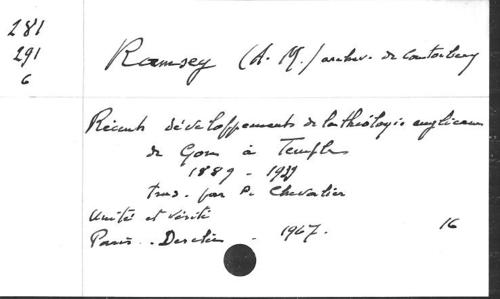 281
291
6
Ramsey (A. M.) archev. de Cantorbery
Récents développements de la théologie anglicane
de Gore à Temple
1889 - 1939
trad. par P. Chevalier
Unité et vérité
Paris. Desclée. 1967. 16